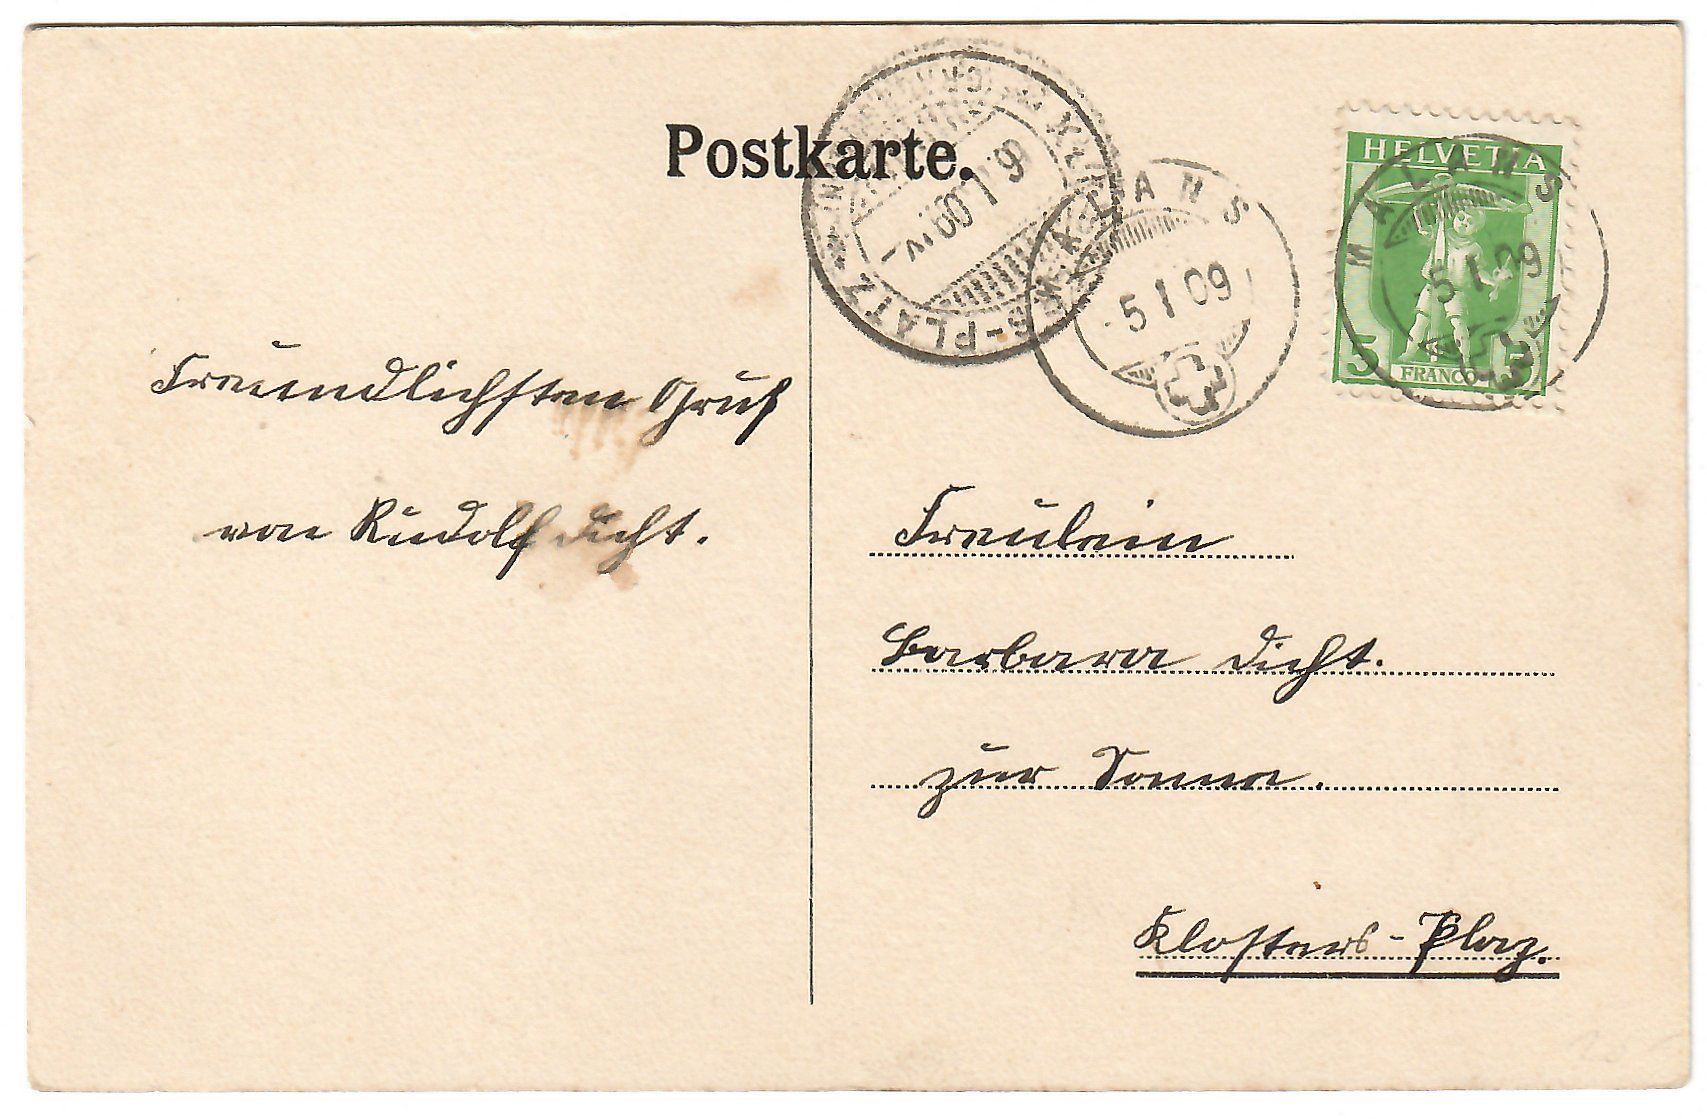 Postkarte.
HELVETIA
5 FRANCO 5
MALANS
-5 I 09
MALANS
-5 I 09
KLOSTERS-PLATZ
6 I 09 XI
Freundlichsten Gruß
von Rudolf Dicht.
Freulein
Barbara Dicht.
zur Sonne.
Klosters-Plaz.